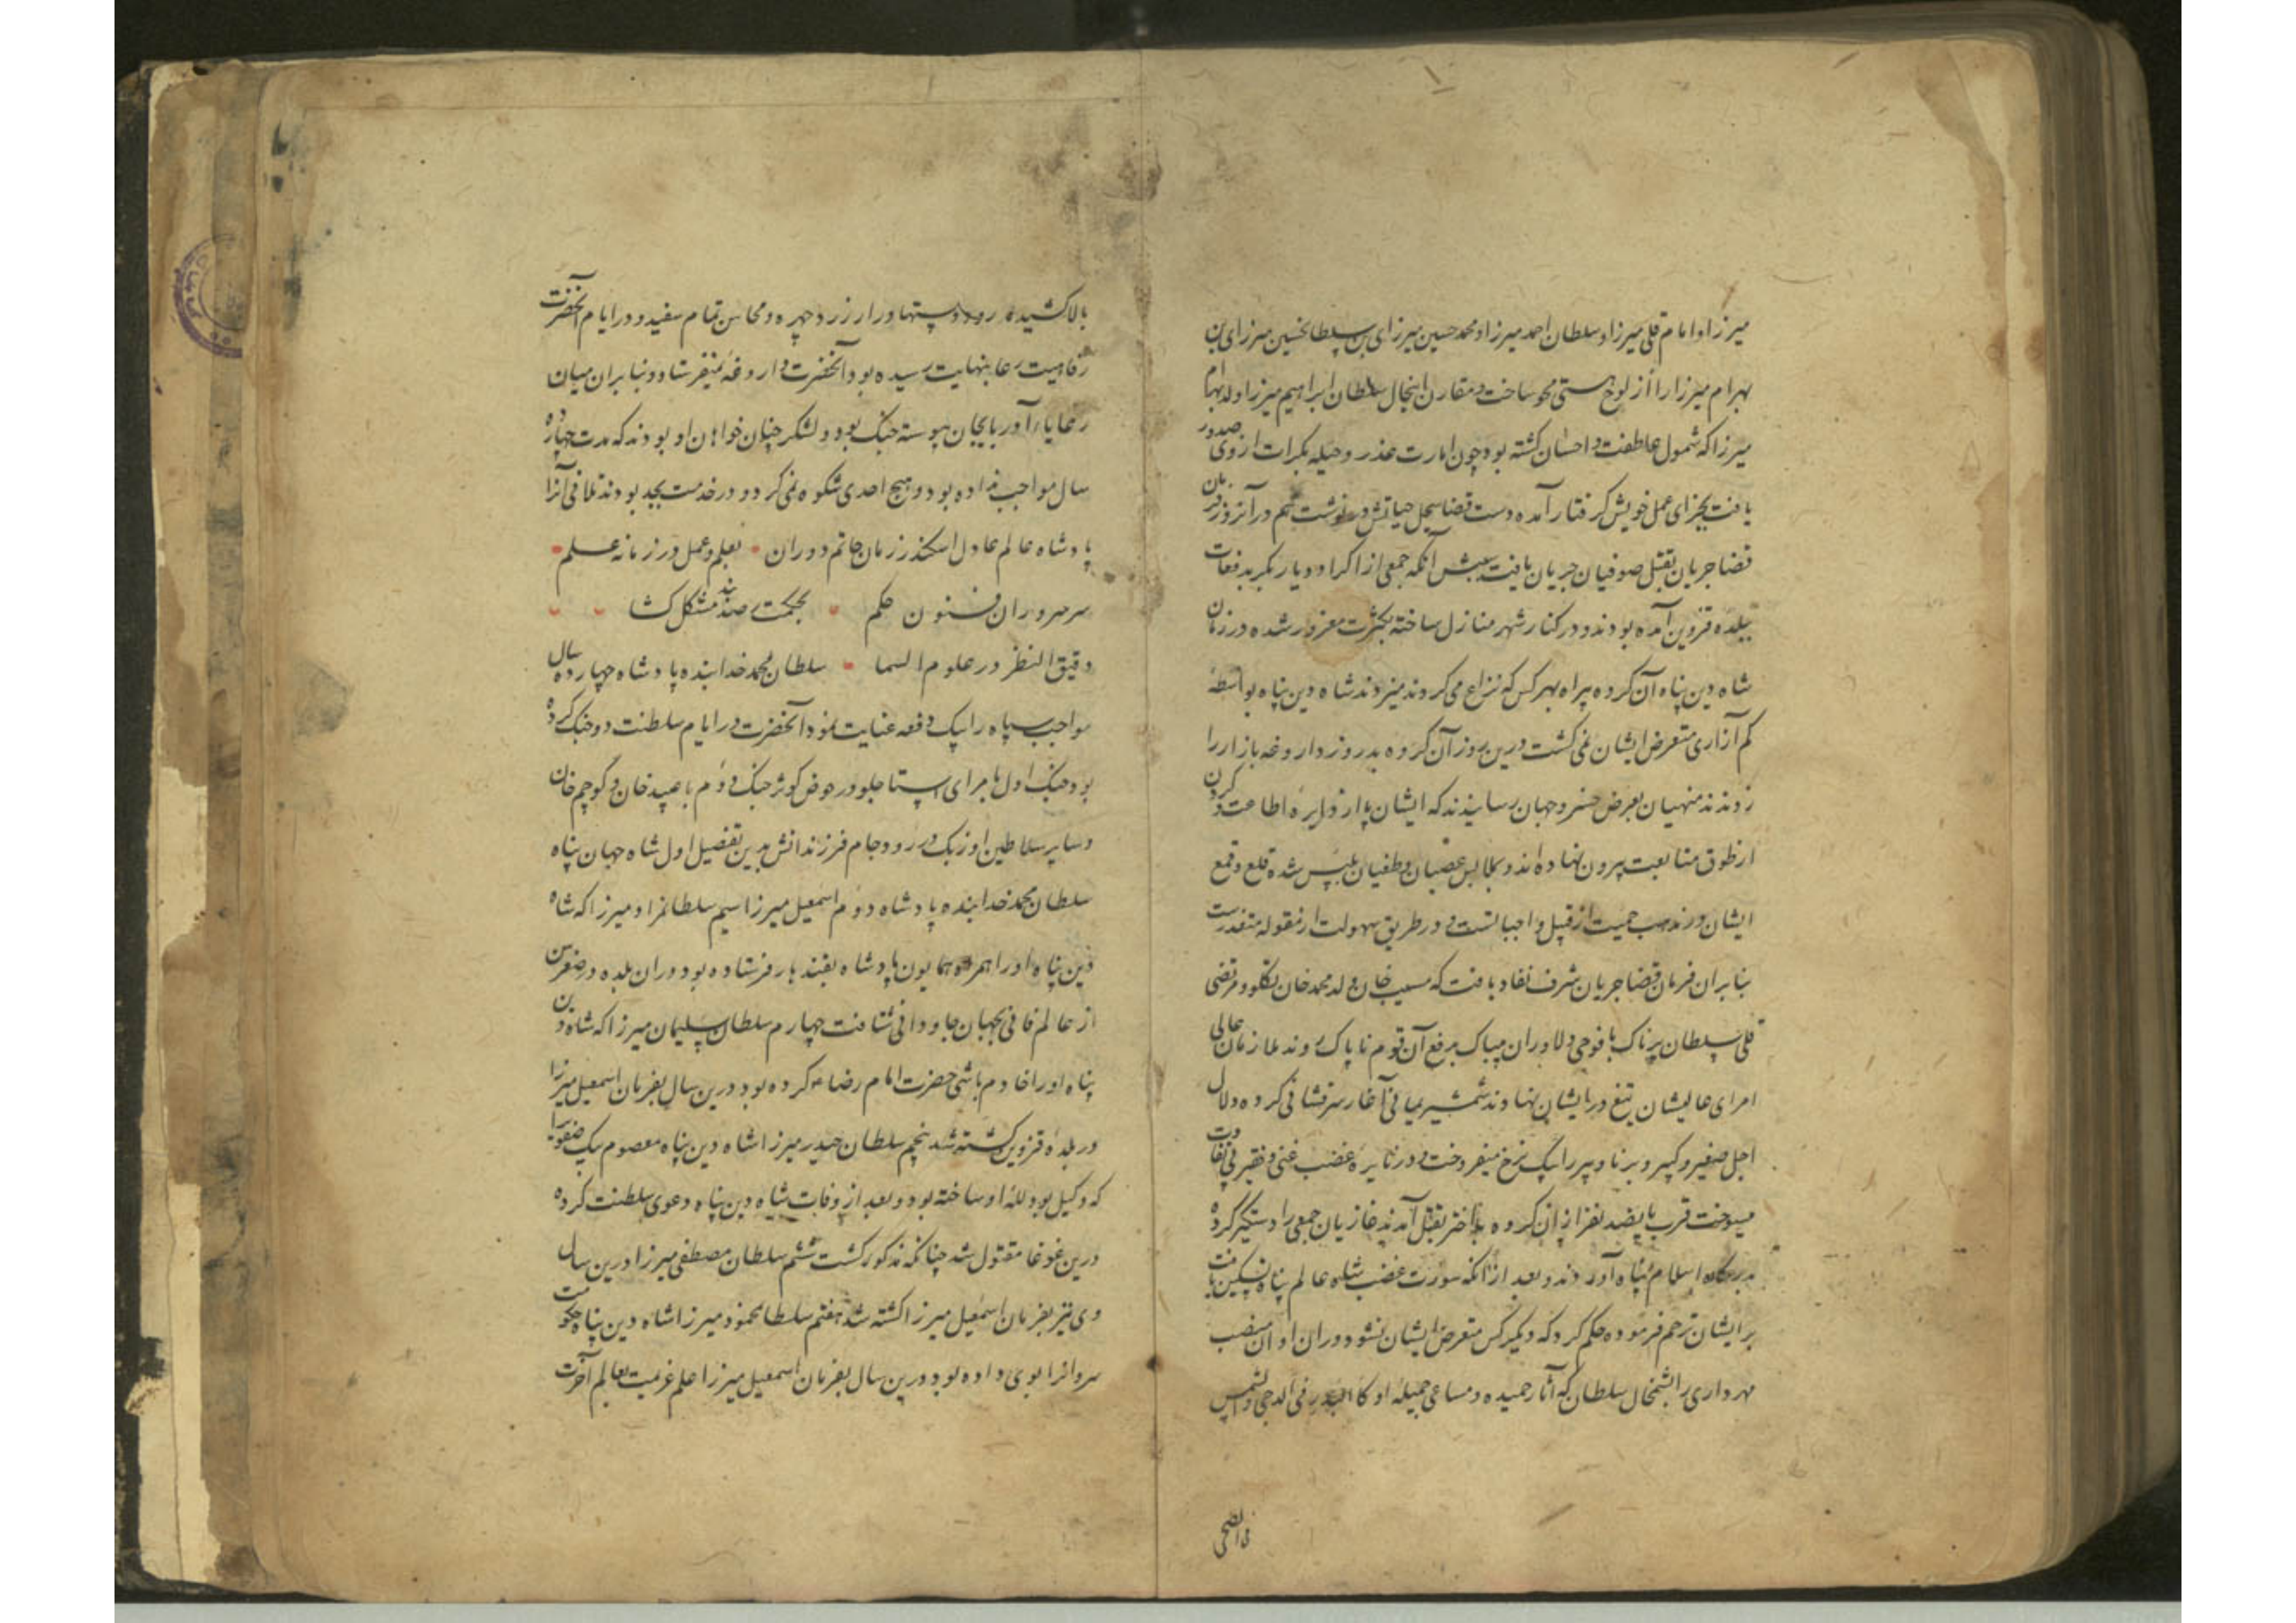 میرزا و امام قلی میرزا و سلطان احمد میرزا و محمد حسین میرزای بن سلطانحسین میرزای بن
بهرام میرزا را از لوح هستی محو ساخت و مقارن اینحال سلطان ابراهیم میرزا ولد بهرام
میرزا که شمول عاطفت و احسان گشته بود چون امارت عذر و حیله بکرات از وی صدور
یافت بجزای عمل خویش گرفتار آمده دست قضا سجل حیاتش در نوشت هم در آنروز فرمان
قضا جریان بقتل صوفیان جریان یافت سببش آنکه جمعی از اکراد دیار بکر بدفعات
ببلده قزوین آمده بودند و در کنار شهر منازل ساخته بکثرت مغرور شده در زمان
شاه دین پناه آن کروه پیراه بهر کس که نزاع می کردند میزدند شاه دین پناه بواسطهٔ
کم آزاری متعرض ایشان نمی گشت درین روز آن کروه بدروز داروغه بازار را
زدند منهیان بعرض خسرو جهان رسانیدند که ایشان پا از دایره اطاعت و گردن
از طوق متابعت بیرون نهاده اند و بملابس عصیان و طغیان ملبس شده قلع و قمع
ایشان در مذهب حمیت از قبیل واجباتست و در طریق سهولت از مقوله متعذرست
بنا بران فرمان قضا جریان شرف نفاد یافت که مسیب خان ولد محمد خان تکلو و مرتضی
قلی سلطان پرناک با فوجی دلاوران بیباک برفع آن قوم ناپاک روند ملازمان عالی
امرای عالیشان تیغ در ایشان نهادند شمشیر یمانی آغاز سرفشانی کرده دلال
اجل صغیر و کبیر و برنا و پیر را بیک نرخ میفروخت و در نایره غضب غنی و فقیر بی تفاوت
میسوخت قرب پانصد نفر از ان کروه بداختر بقتل آمدند غازیان جمعی را دستگیر کرده
بدرگاه اسلام پناه آوردند و بعد از آنکه سورت غضب شاه عالم پناه تسکین یافت
بر ایشان ترحم فرموده حکم کرد که دیگر کس متعرض ایشان نشود و در ان اوان منصب
مهرداری را بشمخال سلطان که آثار حمیده و مساعی جمیله او کالبدر فی الدجی و الشمس
فی الضحی
بالا کشیده رو و دستها دراز زرد چهره و محاسن تمام سفید و در ایام آنحضرت
رفاهیت رعایا بنهایت رسیده بود آنحضرت داروغه نمیفرستاد و بنا بران میان
رعایاء آذربایجان پیوسته جنگ بود و لشکر چنان خواهان او بودند که مدت چهارده
سال مواجب نداده بود و هیچ احدی شکوه نمی کرد و در خدمت بجد بودند تلافی آنرا
پادشاه عالم عادل اسکندر زمان حاتم دوران بعلم و عمل در زمانه علم
سرسروران فنون حکم بحکمت صد مشکل کشا
دقیق النظر در علوم السما سلطان محمد خدابنده پادشاه چهارده سال
مواجب سپاه را بیک دفعه عنایت نمود آنحضرت در ایام سلطنت دو جنگ کرده
بود جنگ اول با امرای استاجلو در حوض کوثر جنگ دوم با عبید خان و کوچم خان
و سایر سلاطین اوزبک در رود جام فرزندانش بدین تفصیل اول شاه جهان پناه
سلطان محمد خدابنده پادشاه دوم اسمعیل میرزا سیم سلطانمراد میرزا که شاه
دین پناه او را همراه همایون پادشاه بقندهار فرستاده بود در ان بلده در صغر سن
از عالم فانی بجهان جاودانی شتافت چهارم سلطان سلیمان میرزا که شاه دین
پناه او را خادم باشی حضرت امام رضا ع کرده بود درین سال بفرمان اسمعیل میرزا
در بلده قزوین کشته شد پنجم سلطان حیدر میرزا شاه دین پناه معصوم بیک صفوی را
که وکیل بود للهٔ او ساخته بود و بعد از وفات شاه دین پناه دعوی سلطنت کرده
درین غوغا مقتول شد چنانکه مذکور گشت ششم سلطان مصطفی میرزا درین سال
وی نیز بفرمان اسمعیل میرزا کشته شد هفتم سلطانمحمود میرزا شاه دین پناه حکومت
سروانرا بوی داده بود درین سال بفرمان اسمعیل میرزا علم عزیمت بعالم آخرت